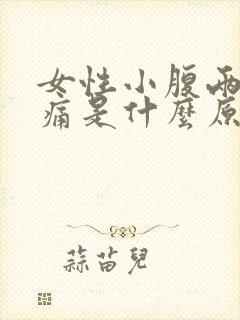 女性小腹兩
痛是什麼原
蒜苗兒